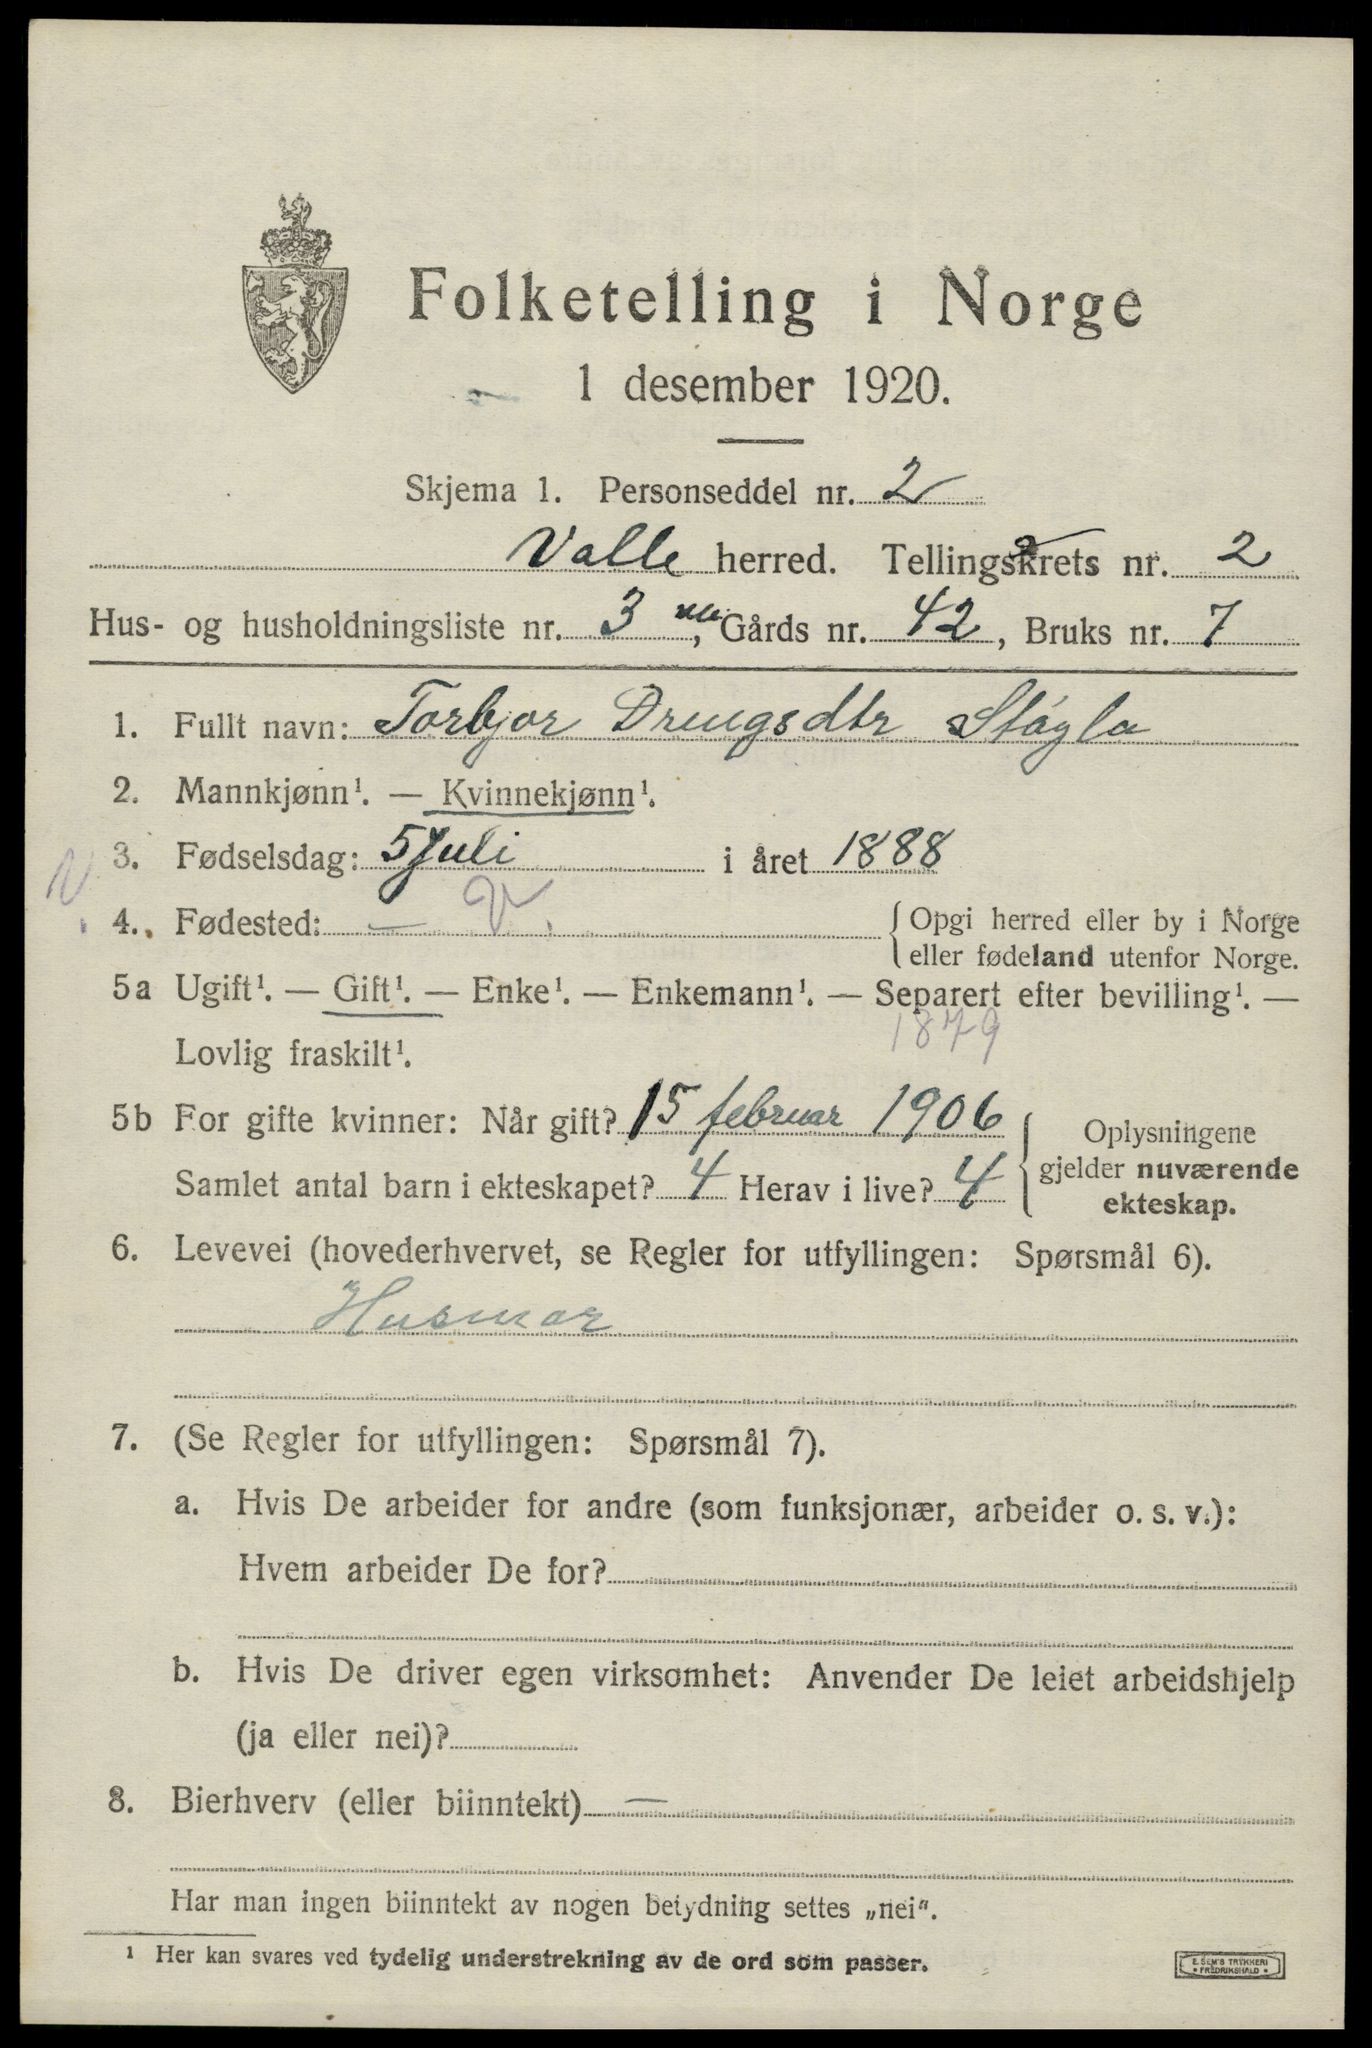 Folketelling i Norge
1 desember 1920.
Skjema 1. Personseddel nr. 2
Valle herred. Tellingskrets nr. 2
Hus- og husholdningsliste nr. 3, Gårds nr. 42, Bruks nr. 7
1. Fullt navn: Torbjor Drengsdtr Stågla
2. Mannkjønn¹. — Kvinnekjønn¹.
3. Fødselsdag: 5 Juli i året 1888
V.
4. Fødested: — V. { Opgi herred eller by i Norge
eller fødeland utenfor Norge.
5a Ugift¹. — Gift¹. — Enke¹. — Enkemann¹. — Separert efter bevilling¹. —
1879
Lovlig fraskilt¹.
5b For gifte kvinner: Når gift? 15 februar 1906
Samlet antal barn i ekteskapet? 4 Herav i live? 4
Oplysningene
gjelder nuværende
ekteskap.
6. Levevei (hovederhvervet, se Regler for utfyllingen: Spørsmål 6).
Husmor
7. (Se Regler for utfyllingen: Spørsmål 7).
a. Hvis De arbeider for andre (som funksjonær, arbeider o. s. v.):
Hvem arbeider De for?
b. Hvis De driver egen virksomhet: Anvender De leiet arbeidshjelp
(ja eller nei)?
8. Bierhverv (eller biinntekt) —
Har man ingen biinntekt av nogen betydning settes „nei".
¹ Her kan svares ved tydelig understrekning av de ord som passer.
E. SEM'S TRYKKERI
• FREDRIKSHALD •